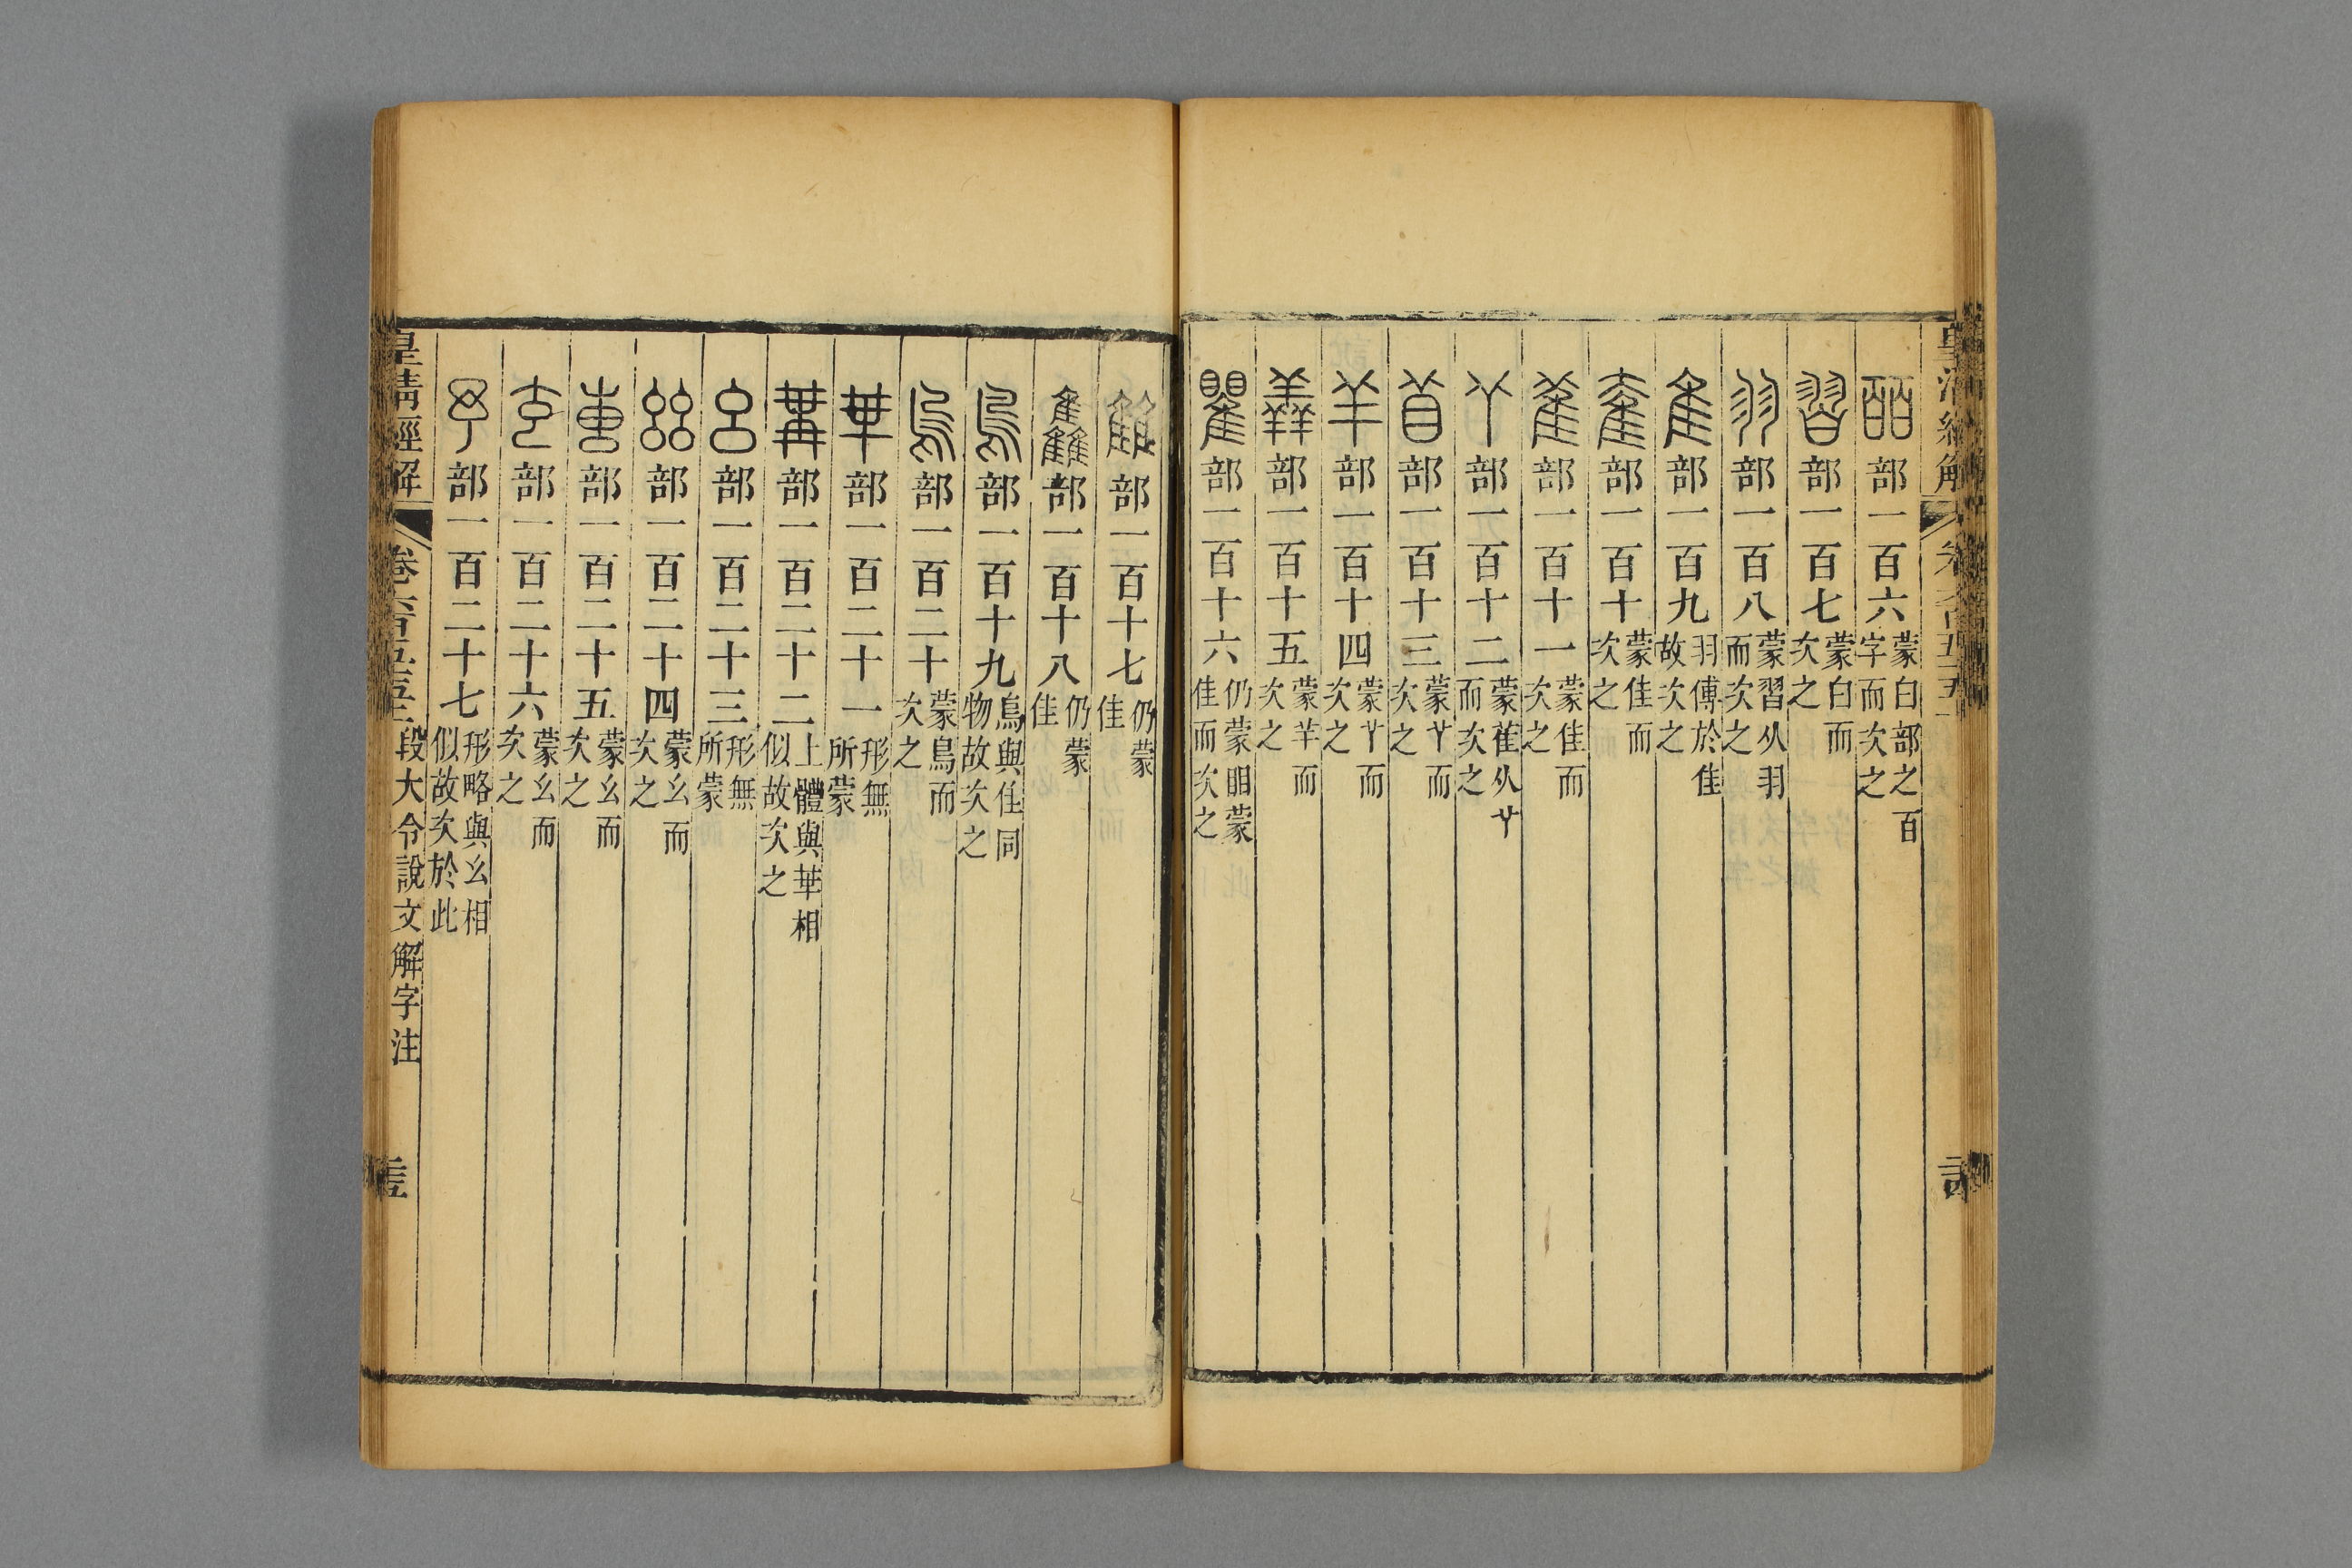 皇清經解
皕部一百六蒙白部之百字而次之
習部一百七蒙白而次之
羽部一百八蒙習从羽而次之
隹部一百九羽傅於隹故次之
奞部一百十蒙隹而次之
萑部一百十一蒙隹而次之
𦫳部一百十二蒙萑从𦫳而次之
𥄕部一百十三蒙𦫳而次之
羊部一百十四蒙𦫳而次之
羴部一百十五蒙羊而次之
瞿部一百十六仍蒙䀠蒙隹而次之
雔部一百十七仍蒙隹
雥部一百十八仍蒙隹
鳥部一百十九鳥與隹同物故次之
烏部一百二十蒙鳥而次之
𠦒部一百二十一形無所蒙
冓部一百二十二上體與𠦒相似故次之
幺部一百二十三形無所蒙
𢆶部一百二十四蒙幺而次之
叀部一百二十五蒙幺而次之
玄部一百二十六蒙幺而次之
予部一百二十七形略與幺相似故次於此
皇清經解 卷六百五十五 段大令說文解字注